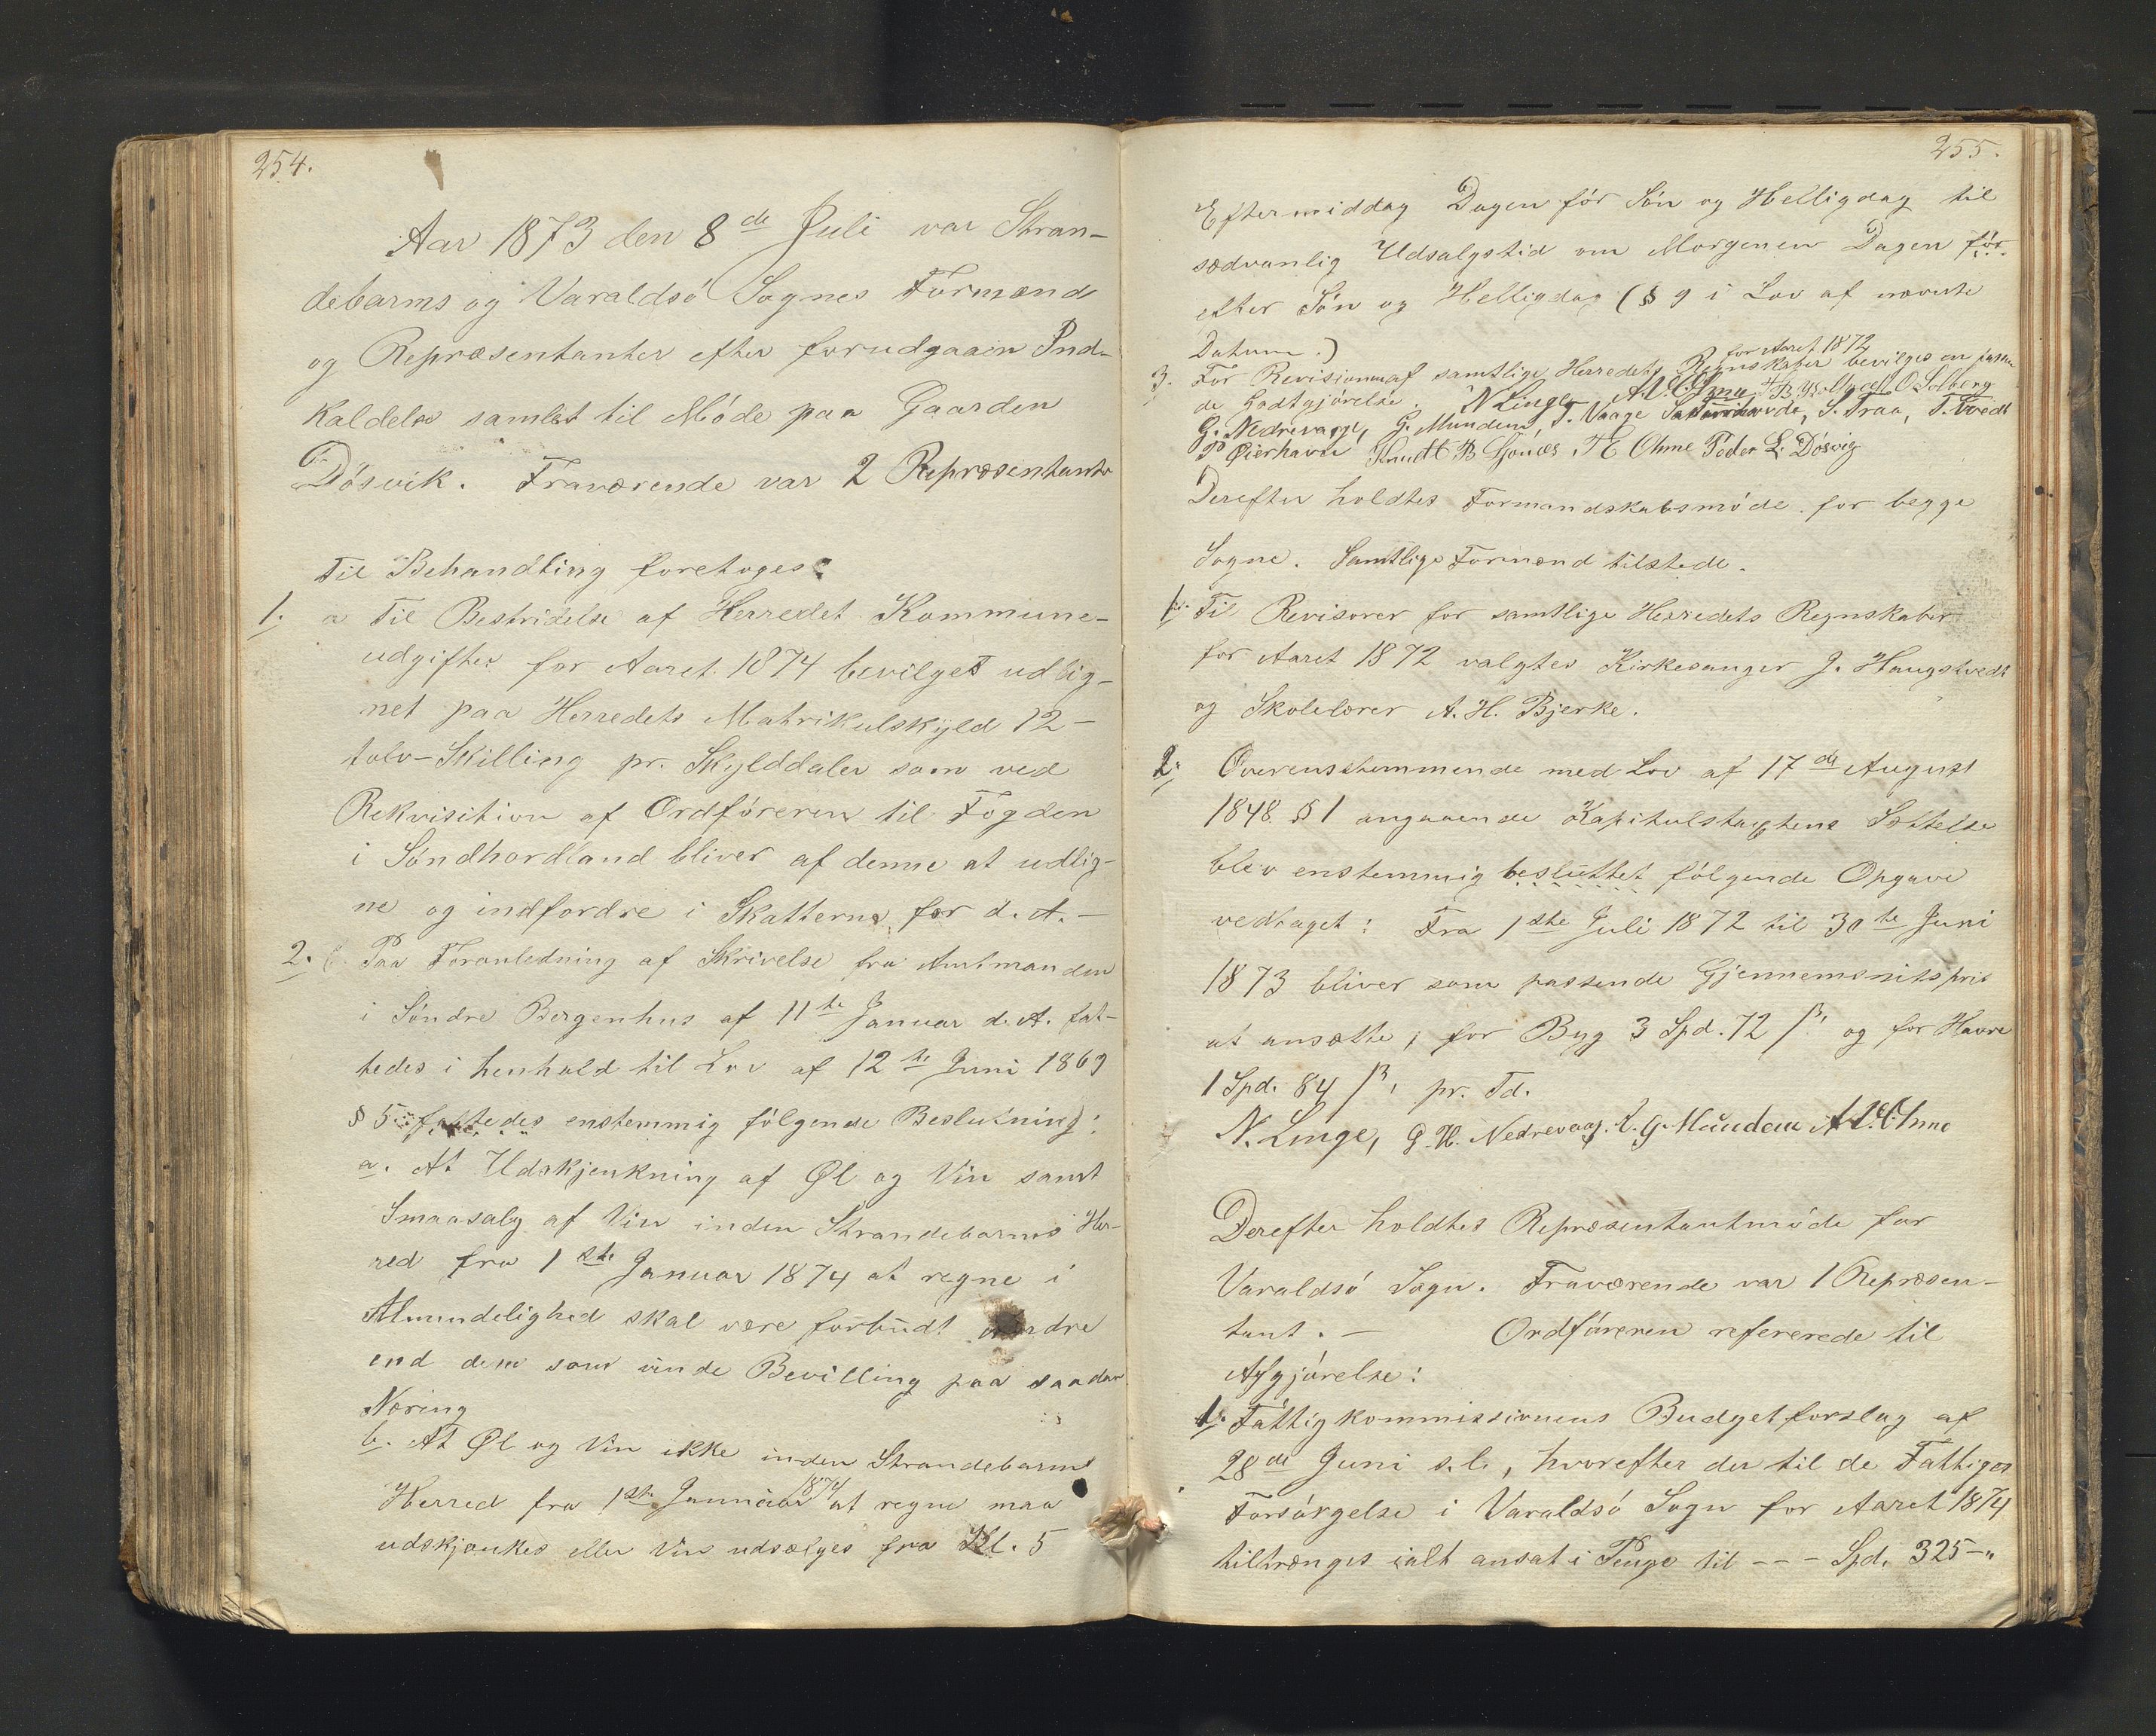 254.
Aar 1873 den 8de Juli var Stran-
debarms og Varaldsö Sognes Formænd
og Repræsentanter efter forudgaaen Ind-
kaldelse samlet til Möde paa Gaarden
Dösvik. Fraværende var 2 Repræsentanter
Til Behandling foretoges:
1. a Til Bestridelse af Herredet Kommune-
udgifter for Aaret 1874 bevilget udlig-
net paa Herredets Matrikulskyld 12-
tolv-Skilling pr. Skylddaler som ved
Rekvisition af Ordföreren til Fogden
i Söndhordland bliver af denne at udlig-
ne og indfordre i Skatterne for d. A. -
2. Paa Foranledning af Skrivelse fra Amtmanden
i Söndre Bergenhus af 11te Januar d. A. fat-
tedes i henhold til Lov af 12te Juni 1869
§ 5 fattedes enstemmig fölgende Beslutning:
a. At Udskjenkning af Øl og Vin samt
Smaasalg af Vin inden Strandebarms Her-
red fra 1ste Januar 1874 at regne i
Almindelighed skal være forbudt andre
end dem som vinde Bevilling paa saadan
Næring
b. At Øl og Vin ikke inden Strandebarms
Herred fra 1ste Januar 1874 at regne maa
udskjænkes eller Vin udsælges fra Kl. 5
255.
Eftermiddag Dagen för Sön og Helligdag til
sædvanlig Udsalgstid om Morgenen Dagen för
efter Sön og Helligdag (§ 9 i Lov af nævnte
Datum.)
for Aaret 1872
3. For Revisionen af samtlige Herredets Regnskaber bevilges en passen
de Godtgjörelse. N Linge, A. L. Ome, O Solberg
G. Nedrevaage, G. Mundem, T. Vaage S. Traa, T. Tvedt
P Øierhavn Knudt B Gjönes H E Ohme Peder L. Dösvig
Derefter holdtes Formandskabsmöde for begge
Sogne. Samtlige Formænd tilstede.
1. Til Revisorer for samtlige Herredets Regnskaber
for Aaret 1872 valgtes Kirkesanger J. Haugstvedt
og Skolelærer A. H. Bjerke.
2. Overensstemmende med Lov af 17de August
1848 § 1 angaaende Kapitulstagtens Sættelse
blev enstemmig besluttet fölgende Opgave
vedtaget: Fra 1ste Juli 1872 til 30te Juni
1873 bliver som passende Gjennemsnitspris
at ansætte, for Byg 3 Spd. 72 ß, og for Havre
1 Spd. 84 ß, pr. Td.
N. Linge, G. H. Nedrevaag. A. G. Mundem A L. Ohme
Derefter holdtes Repræsentantmöde for
Varaldsö Sogn. Fraværende var 1 Repræsen-
tant. - Ordföreren refererede til
Afgjörelse:
1. Fattigkommissionens Budgetforslag af
28de Juni s. l., hvorefter der til de Fattiges
Forsörgelse i Varaldsö Sogn for Aaret 1874
tiltrænges ialt ansat i Penge til --- Spd. 325-"